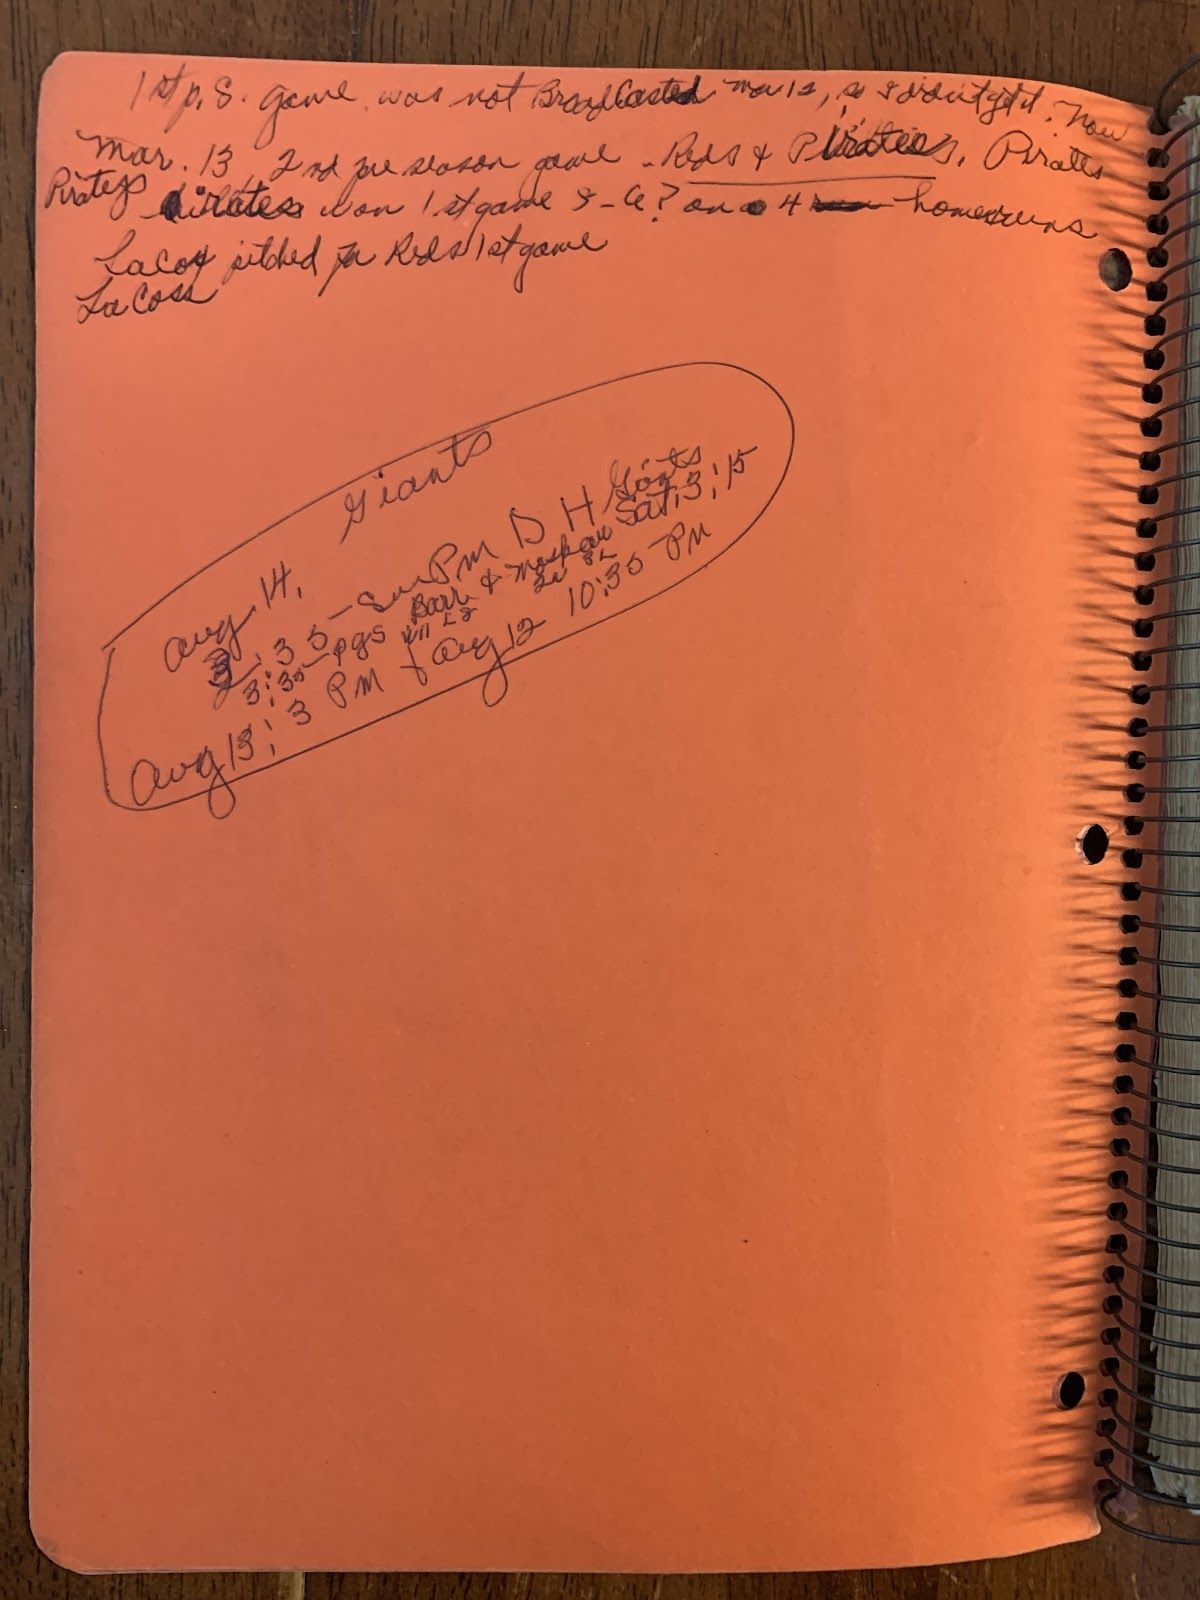 1st p.S. game was not Broadcasted Mar 12, so I didn't get it. Now
Mar. 13, 2nd pre season game - Reds & Pirates. Pirates
Pirates Pirates won 1st game 8-6? on 4 homeruns
LaCoss pitched for Reds 1st game
LaCoss
Giants
Aug 14.
3:35 - Sun PM D H Giants
3:35 - pgs Barr & Sat: 3:15
Aug 13: 3 PM + Aug 12 10:35 PM